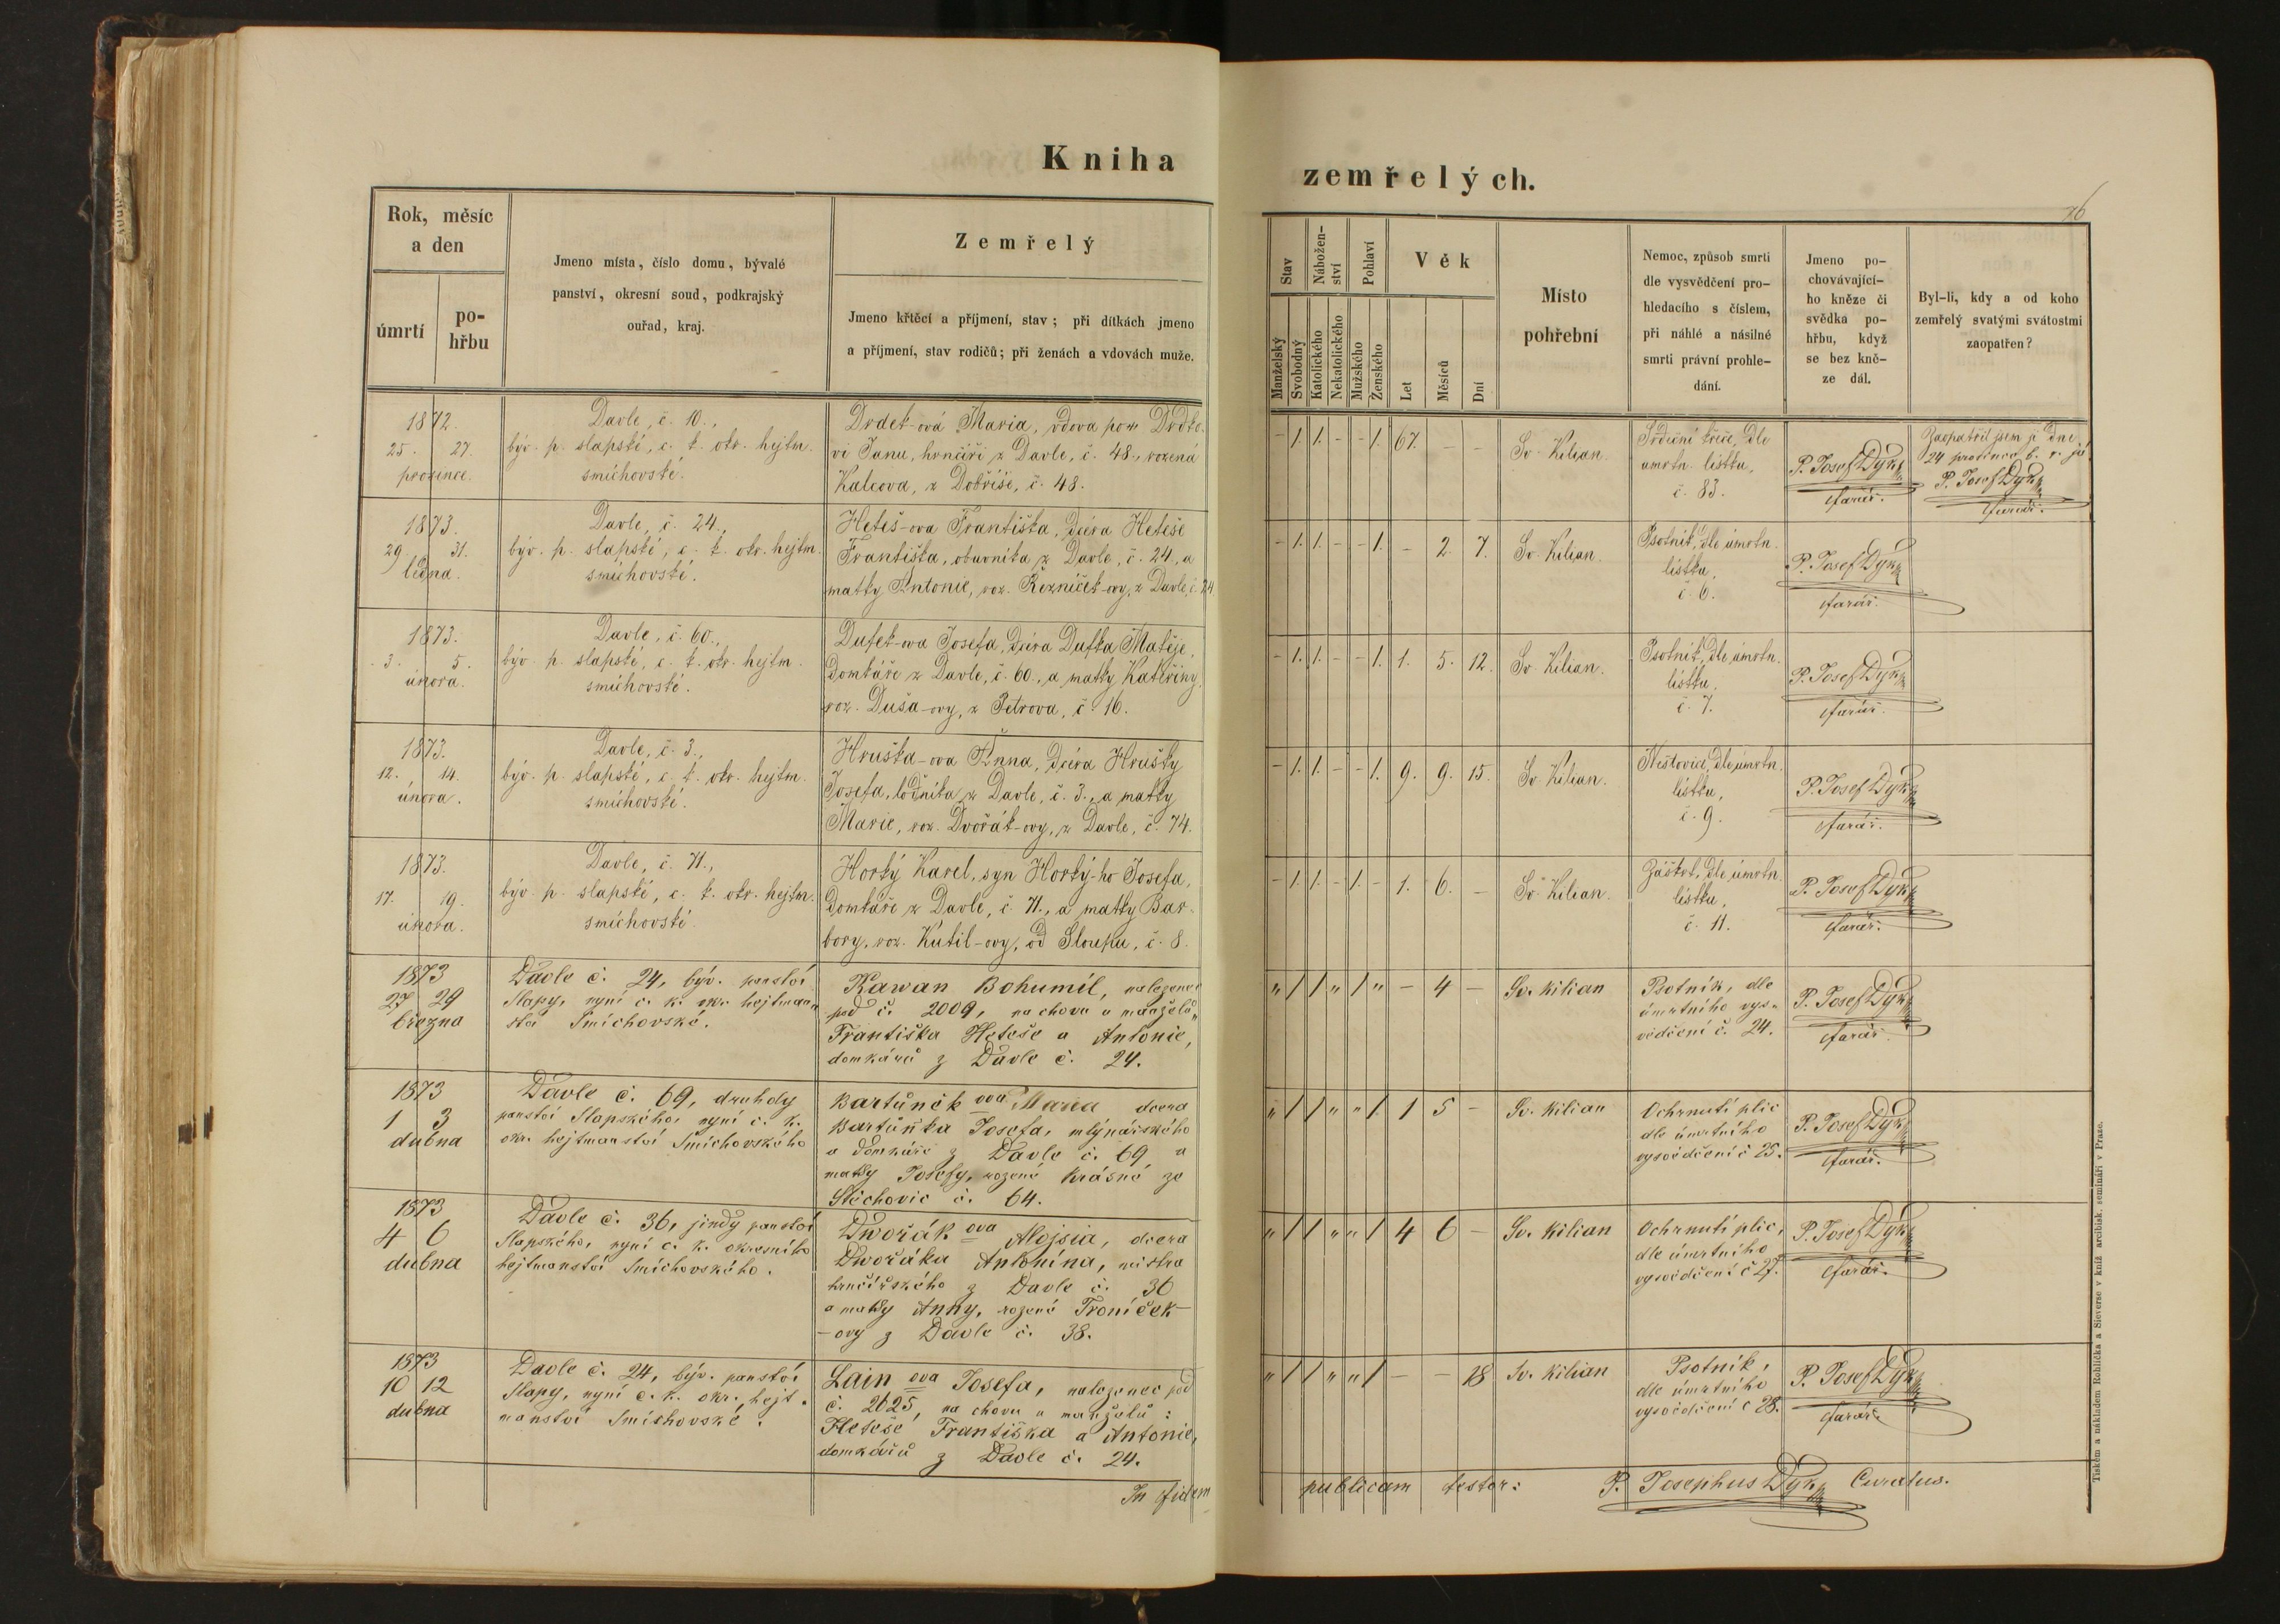 Kniha
Rok, měsíc
a den
úmrtí
po-
hřbu
Jmeno místa, číslo domu, bývalé
panství, okresní soud, podkrajský
ouřad, kraj.
Zemřelý
Jmeno křtěcí a příjmení, stav; při dítkách jmeno
a příjmení, stav rodičů; při ženách a vdovách muže.
1872.
25. 27.
prosince.
Davle, č. 10.,
býv. p. slapské, c. k. okr. hejtm.
smíchovské.
Drdek-ová Maria, vdova po Drdko-
vi Janu, hrnčíři z Davle, č. 48., rozená
Kalcova, z Dobříše, č. 48.
1873.
29 31.
ledna.
Davle, č. 24.,
býv. p. slapské, c. k. okr. hejtm.
smíchovské.
Heteš-ova Františka, dcera Heteše
Františka, obuvníka z Davle, č. 24., a
matky Antonie, roz. Řezníček-ovy, z Davle, č. 24
1873.
3. 5.
února.
Davle, č. 60.,
býv. p. slapské, c. k. okr. hejtm.
smíchovské.
Dufek-ova Josefa, dcera Dufka Matěje,
domkáře z Davle, č. 60., a matky Kateřiny,
roz. Duša-ovy, z Petrova, č. 16.
1873.
12. 14.
února.
Davle, č. 3.,
býv. p. slapské, c. k. okr. hejtm.
smíchovské.
Hruška-ova Anna, dcera Hrušky
Josefa, lodníka z Davle, č. 3., a matky
Marie, roz. Dvořák-ovy, z Davle, č. 74.
1873.
17. 19.
února.
Davle, č. 71.,
býv. p. slapské, c. k. okr. hejtm.
smíchovské.
Horký Karel, syn Horký-ho Josefa,
domkáře z Davle, č. 71., a matky Bar-
bory, roz. Kutil-ovy, od Sloupu, č. 8.
1873
27 29
března
Davle č. 24, býv. panství
Slapy, nyní c. k. okr. hejtman„
ství Smíchovské.
Kawan Bohumil, nalezenec
pod č. 2009, na chovu u manželů„
Františka Heteše a Antonie,
domkářů z Davle č. 24.
1873
1 3
dubna
Davle č. 69, druhdy
panství Slapského, nyní c. k.
okr. hejtmanství Smíchovského
Bartůněk ova Maria dcera
Bartůňka Josefa, mlynářského
a domkáře z Davle č. 69 a
matky Josefy, rozené Krásné ze
Štěchovic č. 64.
1873
4 6
dubna
Davle č. 36, jindy panství
Slapského, nyní c. k. okresního
hejtmanství Smíchovského.
Dwořák ova Alojsia, dcera
Dwořáka Antonína, mistra
hrnčířského z Davle č. 36
a matky Anny, rozené Troníček-
-ovy z Davle č. 38.
1873
10 12
dubna
Davle č. 24, býv. panství
Slapy, nyní c. k. okr. hejt.
manství Smíchovské.
Lain ova Josefa, nalezenec pod
č. 2625, na chovu u manželů:
Heteše Františka a Antonie,
domkářů z Davle č. 24.
In fidem
zemřelých.
76
Stav
Nábožen-
ství
Pohlaví
Věk
Manželský
Svobodný
Katolického
Nekatolického
Mužského
Ženského
Let
Měsíců
Dní
Místo
pohřební
Nemoc, způsob smrti
dle vysvědčení pro-
hledacího s číslem,
při náhlé a násilné
smrti právní prohle-
dání.
Jmeno po-
chovávající-
ho kněze či
svědka po-
hřbu, když
se bez kně-
ze dál.
Byl-li, kdy a od koho
zemřelý svatými svátostmi
zaopatřen?
- 1. 1. - - 1. 67. - - Sv. Kilian.
Srdeční křeče, dle
úmrtn. lístku,
č. 83.
P. Josef Dyk
farář.
Zaopatřil jsem ji dne
24 prosince b. r. já
P. Josef Dyk
farář.
- 1. 1. - - 1. - 2. 7. Sv. Kilian.
Psotník, dle úmrtn.
lístku,
č. 6.
P. Josef Dyk
farář.
- 1. 1. - - 1. 1. 5. 12. Sv. Kilian.
Psotník, dle úmrtn.
lístku,
č. 7.
P. Josef Dyk
farář.
- 1. 1. - - 1. 9. 9. 15. Sv. Kilian.
Neštovice, dle úmrtn.
lístku,
č. 9.
P. Josef Dyk
farář.
- 1. 1. - 1. - 1. 6. - Sv. Kilian.
Záškrt, dle úmrtn.
lístku,
č. 11.
P. Josef Dyk
farář.
„ 1 1 „ 1 „ - 4 - Sv. Kilian
Psotník, dle
úmrtního vys„
vědčení č. 24.
P. Josef Dyk
farář.
„ 1 1 „ „ 1. 1 5 - Sv. Kilian
Ochrnutí plic
dle úmrtního
vysvědčení č 25.
P. Josef Dyk
farář.
„ 1 1 „ „ 1 4 6 - Sv. Kilian
Ochrnutí plic,
dle úmrtního
vysvědčení č 27.
P. Josef Dyk
farář.
„ 1 1 „ „ 1 - - 18 Sv. Kilian
Psotník,
dle úmrtního
vysvědčení č 28.
P. Josef Dyk
farář.
publicam testor: P. Josephus Dyk Curatus.
Tiskem a nákladem Rohlíčka a Sieverse v kníž. arcibisk. semináři v Praze.